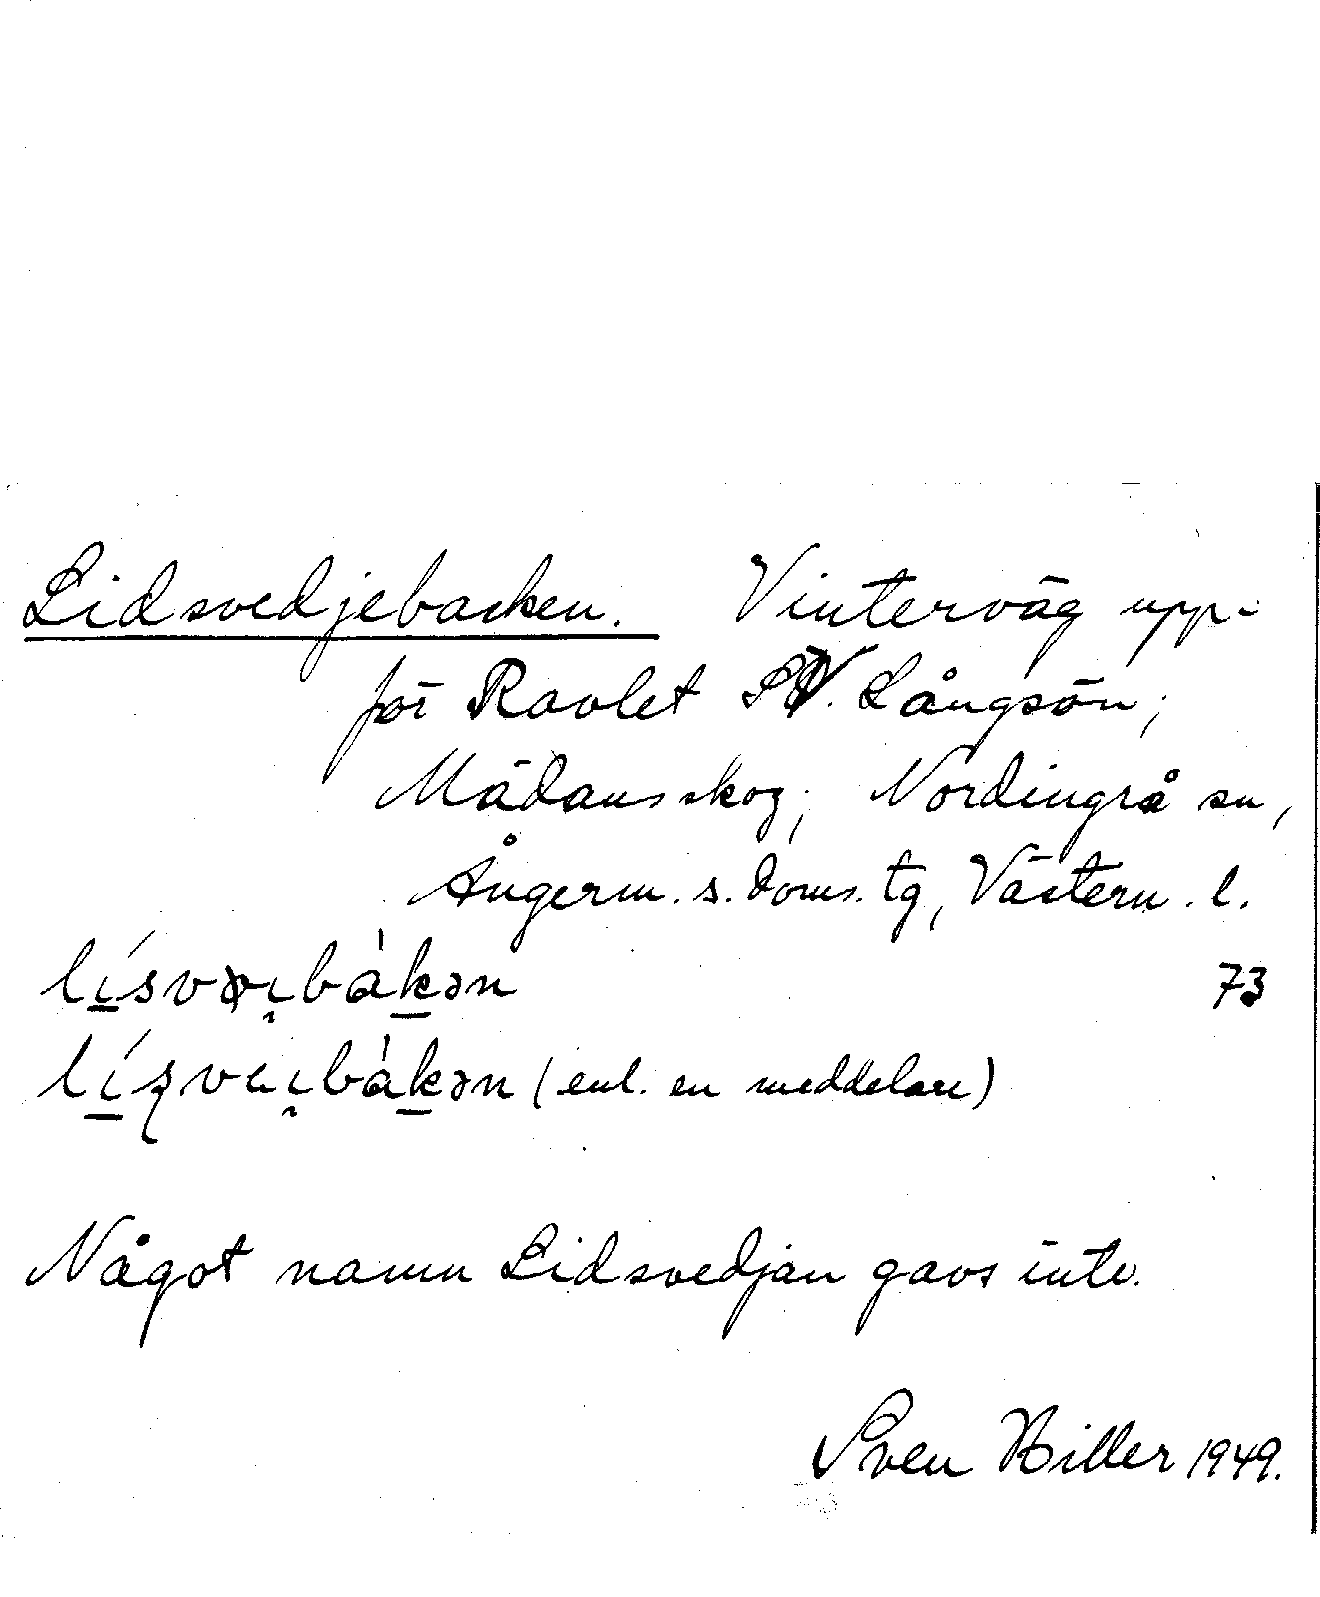 Lidsvedjebacken. Vinterväg upp-
för Ravlet SV. Långsön;
Mädans skog; Nordingrå sn,
Ångerm. s. doms. tg, Västern. l.
73
(enl. en meddelare)
Något namn Lidsvedjan gavs inte.
Sven Hiller 1949.